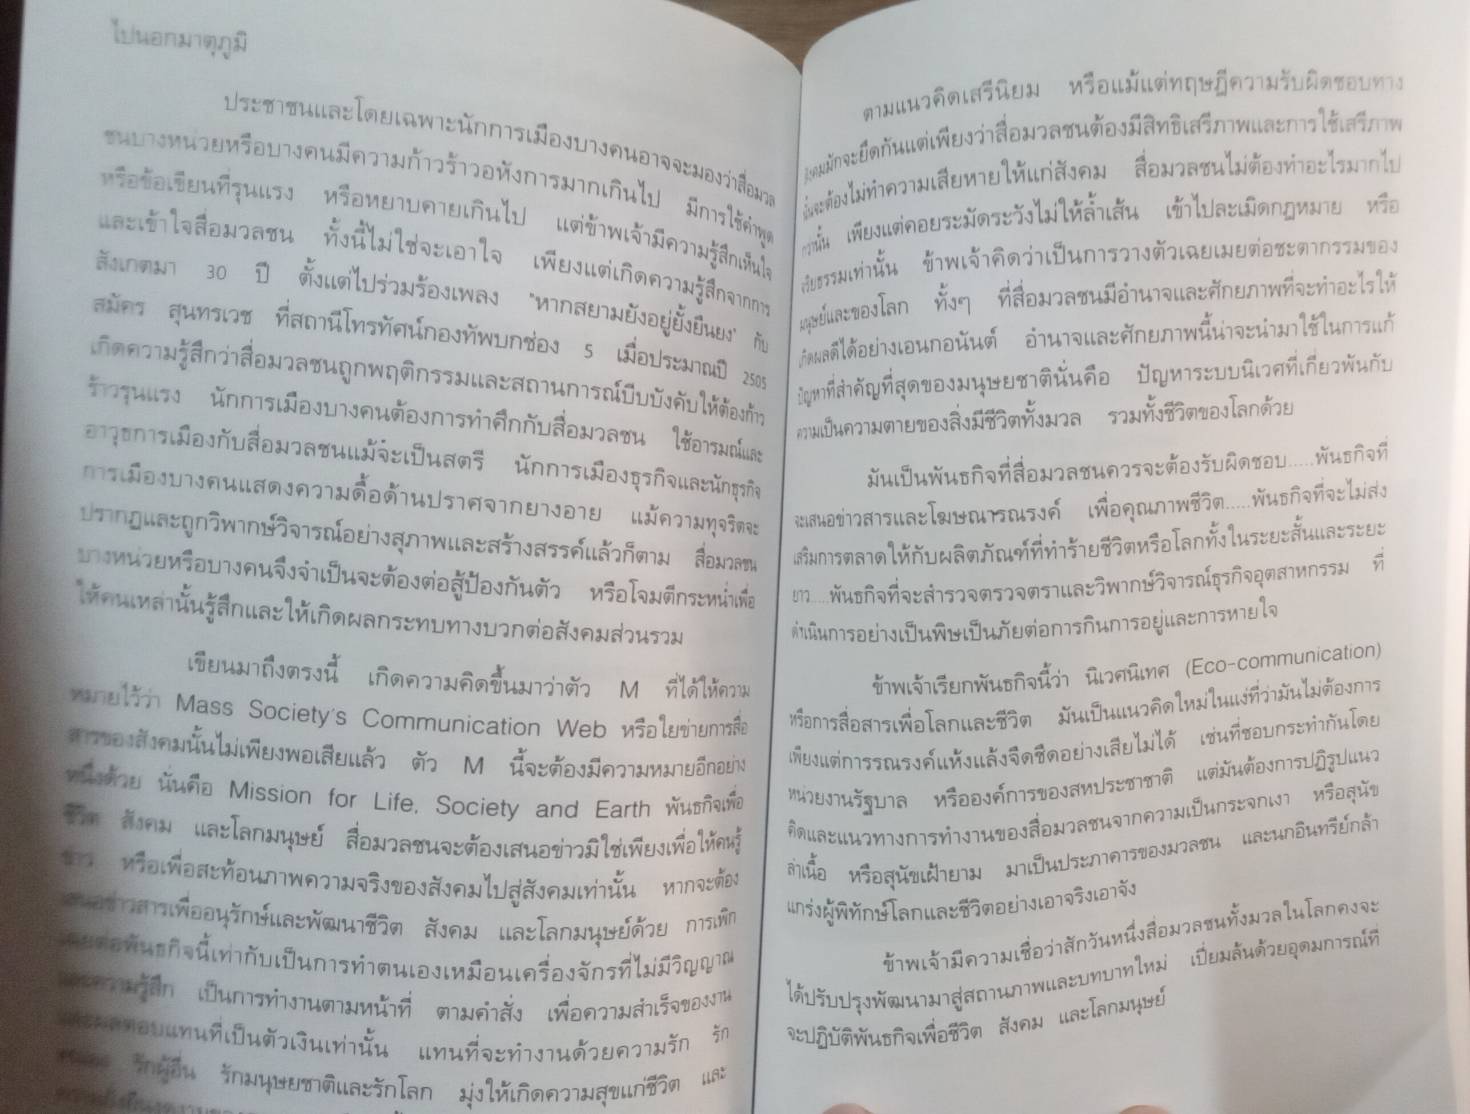 ไปนอกมาตุภูมิ
ประชาชนและโดยเฉพาะนักการเมืองบางคนอาจจะมองว่าสื่อมวล
ชนบางหน่วยหรือบางคนมีความก้าวร้าวอหังการมากเกินไป มีการใช้คำพูด
หรือข้อเขียนที่รุนแรง หรือหยาบคายเกินไป แต่ข้าพเจ้ามีความรู้สึกเห็นใจ
และเข้าใจสื่อมวลชน ทั้งนี้ไม่ใช่จะเอาใจ เพียงแต่เกิดความรู้สึกจากการ
สังเกตมา 30 ปี ตั้งแต่ไปร่วมร้องเพลง "หากสยามยังอยู่ยั้งยืนยง" กับ
สมัคร สุนทรเวช ที่สถานีโทรทัศน์กองทัพบกช่อง 5 เมื่อประมาณปี 2505
เกิดความรู้สึกว่าสื่อมวลชนถูกพฤติกรรมและสถานการณ์บีบบังคับให้ต้องก้าว
ร้าวรุนแรง นักการเมืองบางคนต้องการทำศึกกับสื่อมวลชน ใช้อารมณ์และ
อาวุธการเมืองกับสื่อมวลชนแม้จะเป็นสตรี นักการเมืองธุรกิจและนักธุรกิจ
การเมืองบางคนแสดงความดื้อด้านปราศจากยางอาย แม้ความทุจริตจะ
ปรากฏและถูกวิพากษ์วิจารณ์อย่างสุภาพและสร้างสรรค์แล้วก็ตาม สื่อมวลชน
บางหน่วยหรือบางคนจึงจำเป็นจะต้องต่อสู้ป้องกันตัว หรือโจมตีกระหน่ำเพื่อ
ให้คนเหล่านั้นรู้สึกและให้เกิดผลกระทบทางบวกต่อสังคมส่วนรวม
เขียนมาถึงตรงนี้ เกิดความคิดขึ้นมาว่าตัว M ที่ได้ให้ความ
หมายไว้ว่า Mass Society's Communication Web หรือใยข่ายการสื่อ
สารของสังคมนั้นไม่เพียงพอเสียแล้ว ตัว M นี้จะต้องมีความหมายอีกอย่าง
หนึ่งด้วย นั่นคือ Mission for Life, Society and Earth พันธกิจเพื่อ
ชีวิต สังคม และโลกมนุษย์ สื่อมวลชนจะต้องเสนอข่าวมิใช่เพียงเพื่อให้คนรู้
ข่าว หรือเพื่อสะท้อนภาพความจริงของสังคมไปสู่สังคมเท่านั้น หากจะต้อง
เสนอข่าวสารเพื่ออนุรักษ์และพัฒนาชีวิต สังคม และโลกมนุษย์ด้วย การเพิก
เฉยต่อพันธกิจนี้เท่ากับเป็นการทำตนเองเหมือนเครื่องจักรที่ไม่มีวิญญาณ
และความรู้สึก เป็นการทำงานตามหน้าที่ ตามคำสั่ง เพื่อความสำเร็จของงาน
และผลตอบแทนที่เป็นตัวเงินเท่านั้น แทนที่จะทำงานด้วยความรัก รัก
รักผู้อื่น รักมนุษยชาติและรักโลก มุ่งให้เกิดความสุขแก่ชีวิต และ
ตามแนวคิดเสรีนิยม หรือแม้แต่ทฤษฎีความรับผิดชอบทาง
สังคมมักจะยึดกันแต่เพียงว่าสื่อมวลชนต้องมีสิทธิเสรีภาพและการใช้เสรีภาพ
นั้นจะต้องไม่ทำความเสียหายให้แก่สังคม สื่อมวลชนไม่ต้องทำอะไรมากไป
กว่านั้น เพียงแต่คอยระมัดระวังไม่ให้ล้ำเส้น เข้าไปละเมิดกฎหมาย หรือ
จริยธรรมเท่านั้น ข้าพเจ้าคิดว่าเป็นการวางตัวเฉยเมยต่อชะตากรรมของ
มนุษย์และของโลก ทั้งๆ ที่สื่อมวลชนมีอำนาจและศักยภาพที่จะทำอะไรให้
เกิดผลดีได้อย่างเอนกอนันต์ อำนาจและศักยภาพนี้น่าจะนำมาใช้ในการแก้
ปัญหาที่สำคัญที่สุดของมนุษยชาตินั่นคือ ปัญหาระบบนิเวศที่เกี่ยวพันกับ
ความเป็นความตายของสิ่งมีชีวิตทั้งมวล รวมทั้งชีวิตของโลกด้วย
มันเป็นพันธกิจที่สื่อมวลชนควรจะต้องรับผิดชอบ.....พันธกิจที่
จะเสนอข่าวสารและโฆษณารณรงค์ เพื่อคุณภาพชีวิต.....พันธกิจที่จะไม่ส่ง
เสริมการตลาดให้กับผลิตภัณฑ์ที่ทำร้ายชีวิตหรือโลกทั้งในระยะสั้นและระยะ
ยาว.....พันธกิจที่จะสำรวจตรวจตราและวิพากษ์วิจารณ์ธุรกิจอุตสาหกรรม ที่
ดำเนินการอย่างเป็นพิษเป็นภัยต่อการกินการอยู่และการหายใจ
ข้าพเจ้าเรียกพันธกิจนี้ว่า นิเวศนิเทศ (Eco-communication)
หรือการสื่อสารเพื่อโลกและชีวิต มันเป็นแนวคิดใหม่ในแง่ที่ว่ามันไม่ต้องการ
เพียงแต่การรณรงค์แห้งแล้งจืดชืดอย่างเสียไม่ได้ เช่นที่ชอบกระทำกันโดย
หน่วยงานรัฐบาล หรือองค์การของสหประชาชาติ แต่มันต้องการปฏิรูปแนว
คิดและแนวทางการทำงานของสื่อมวลชนจากความเป็นกระจกเงา หรือสุนัข
ล่าเนื้อ หรือสุนัขเฝ้ายาม มาเป็นประภาคารของมวลชน และนกอินทรีย์กล้า
แกร่งผู้พิทักษ์โลกและชีวิตอย่างเอาจริงเอาจัง
ข้าพเจ้ามีความเชื่อว่าสักวันหนึ่งสื่อมวลชนทั้งมวลในโลกคงจะ
ได้ปรับปรุงพัฒนามาสู่สถานภาพและบทบาทใหม่ เปี่ยมล้นด้วยอุดมการณ์ที่
จะปฏิบัติพันธกิจเพื่อชีวิต สังคม และโลกมนุษย์